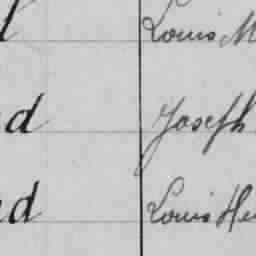 Louis M
d Joseph
d Louis He